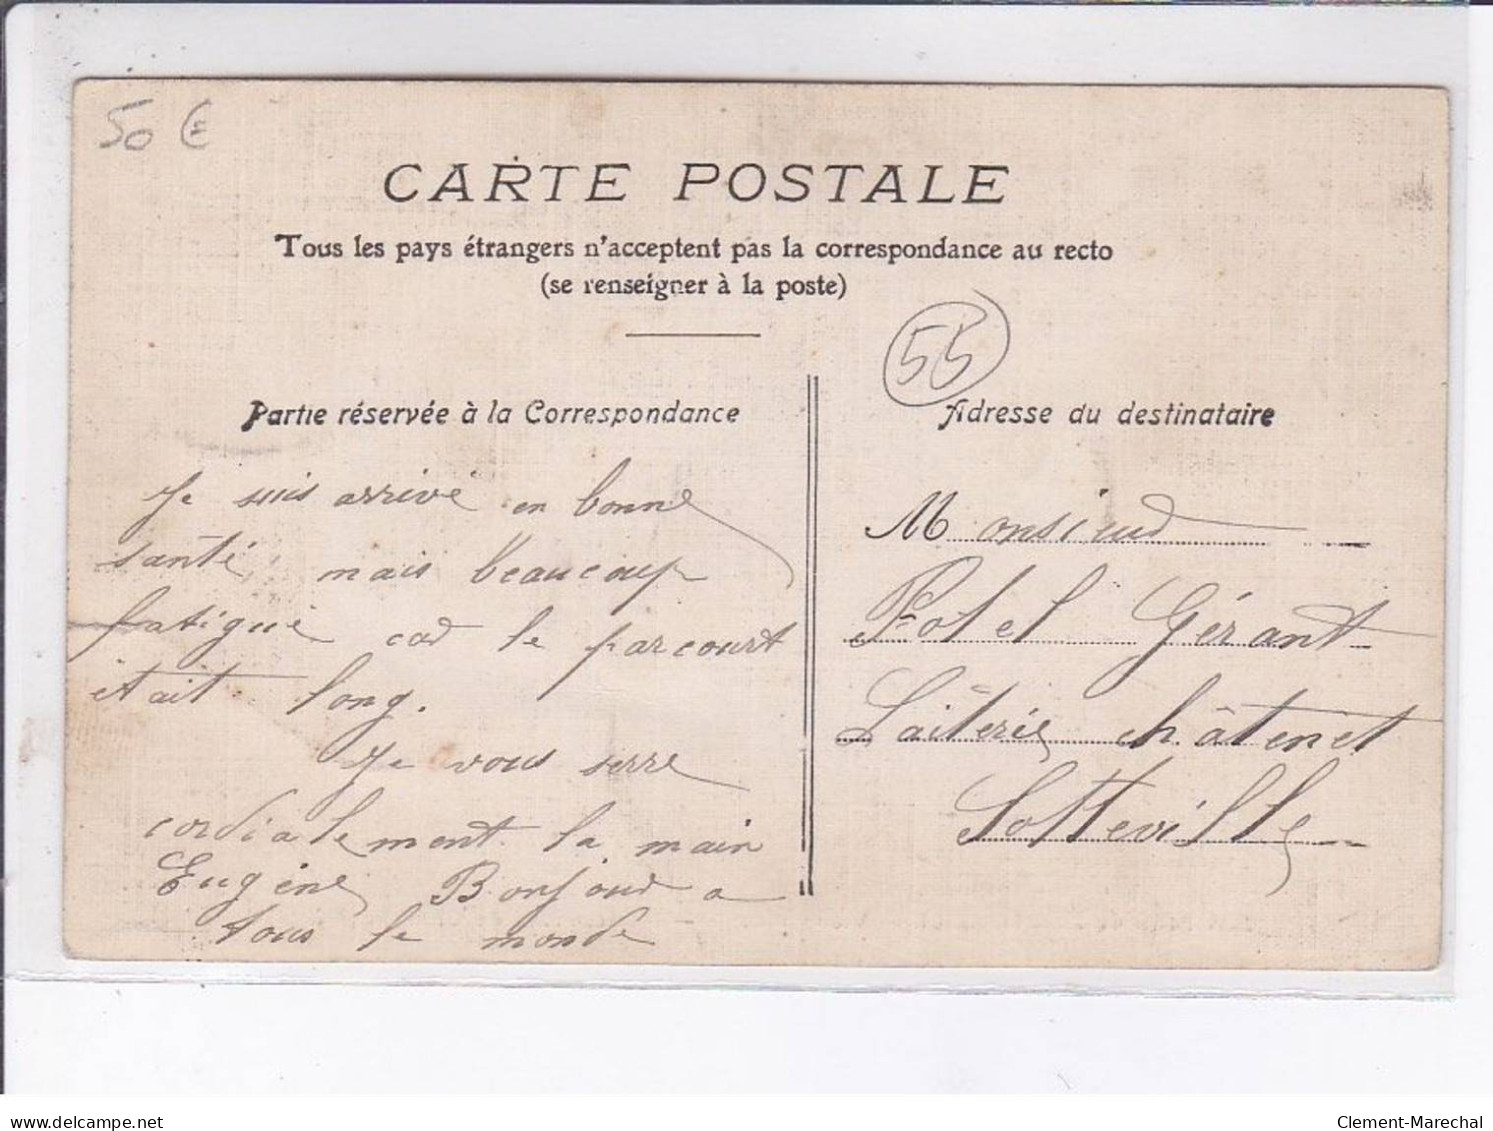 50 €
CARTE POSTALE
Tous les pays étrangers n'acceptent pas la correspondance au recto
(se renseigner à la poste)
55
Partie réservée à la Correspondance
Je suis arrivé en bonne
santé, mais beaucoup
fatigué car le parcourt
était long.
Je vous serre
cordialement la main
Eugéne Bonjour a
tous le monde
Adresse du destinataire
Monsieur
Potel Gérant
Laiterie châtenet
Sotteville
delcampe.net
Clement-Marechal